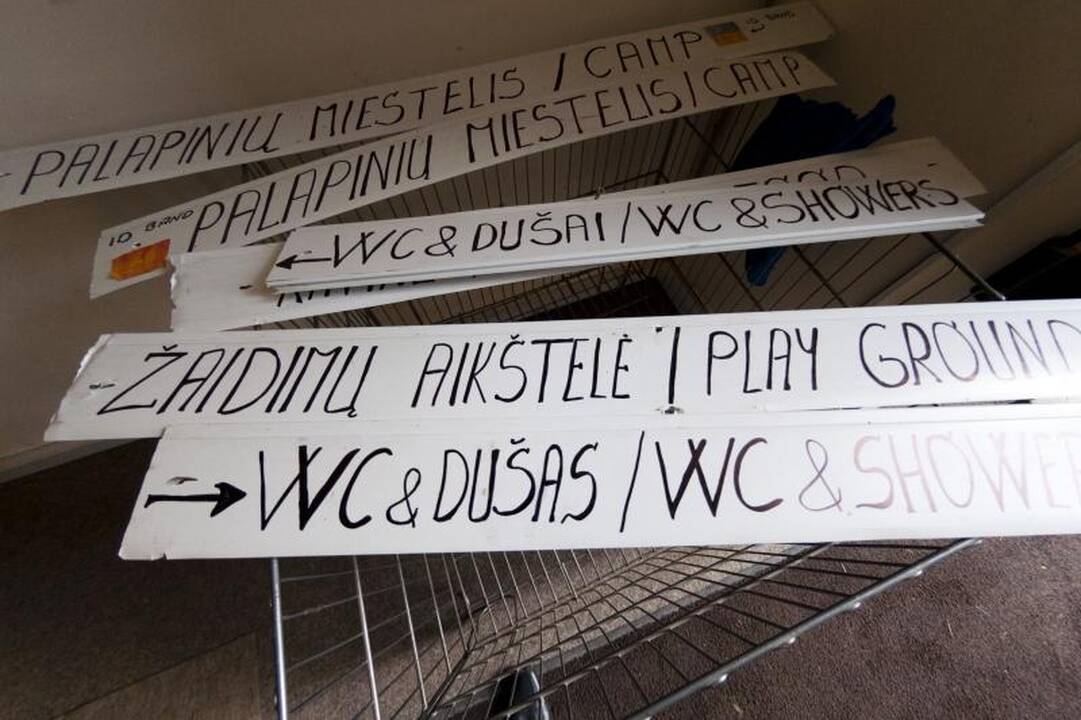 PALAPINIŲ MIESTELIS / CAMP
10 BRND
PALAPINIŲ MIESTELIS / CAMP
← WC & DUŠAI / WC & SHOWERS
ŽAIDIMŲ AIKŠTELĖ | PLAY GROUND
→ WC & DUŠAS / WC & SHOWER